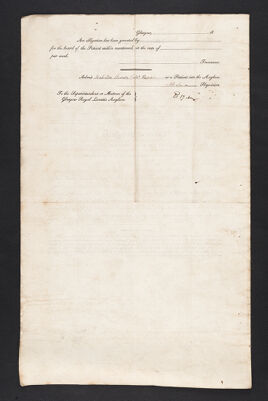 Glasgow, 18
An Obligation has been granted by
for the board of the Patient within mentioned, at the rate of
per week.
Treasurer.
Admit as a Patient into the Asylum
Physician
To the Superintendent or Matron of the
Glasgow Royal Lunatic Asylum.